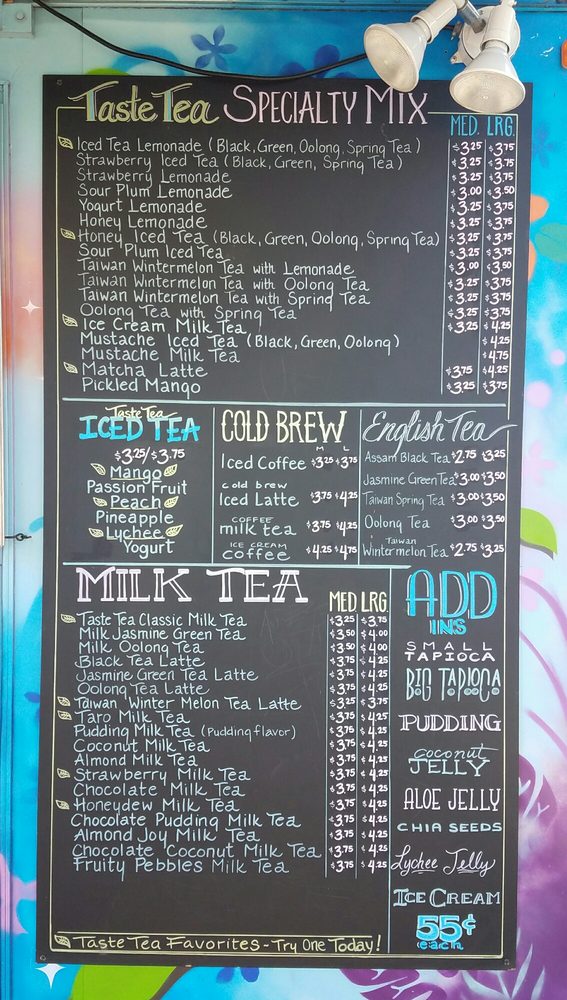 Taste Tea Specialty Mix
MED. LRG.
Iced Tea Lemonade (Black, Green, Oolong, Spring Tea) $3.25 $3.75
Strawberry Iced Tea (Black, Green, Spring Tea) $3.25 $3.75
Strawberry Lemonade $3.25 $3.75
Sour Plum Lemonade $3.00 $3.50
Yogurt Lemonade $3.25 $3.75
Honey Lemonade $3.25 $3.75
Honey Iced Tea (Black, Green, Oolong, Spring Tea) $3.25 $3.75
Sour Plum Iced Tea $3.25 $3.75
Taiwan Wintermelon Tea with Lemonade $3.00 $3.50
Taiwan Wintermelon Tea with Oolong Tea $3.25 $3.75
Taiwan Wintermelon Tea with Spring Tea $3.25 $3.75
Oolong Tea with Spring Tea $3.25 $3.75
Ice Cream Milk Tea $3.25 $4.25
Mustache Iced Tea (Black, Green, Oolong) $4.25
Mustache Milk Tea $4.75
Matcha Latte $3.75 $4.25
Pickled Mango $3.25 $3.75
Taste Tea
ICED TEA
$3.25/$3.75
Mango
Passion Fruit
Peach
Pineapple
Lychee
Yogurt
COLD BREW
M L
Iced Coffee $3.25 $3.75
cold brew
Iced Latte $3.75 $4.25
COFFEE
milk tea $3.75 $4.25
ICE CREAM
coffee $4.25 $4.75
English Tea
Assam Black Tea $2.75 $3.25
Jasmine Green Tea $3.00 $3.50
Taiwan Spring Tea $3.00 $3.50
Oolong Tea $3.00 $3.50
Taiwan
Wintermelon Tea $2.75 $3.25
MILK TEA
MED LRG.
Taste Tea Classic Milk Tea $3.25 $3.75
Milk Jasmine Green Tea $3.50 $4.00
Milk Oolong Tea $3.50 $4.00
Black Tea Latte $3.75 $4.25
Jasmine Green Tea Latte $3.75 $4.25
Oolong Tea Latte $3.75 $4.25
Taiwan Winter Melon Tea Latte $3.25 $3.75
Taro Milk Tea $3.75 $4.25
Pudding Milk Tea (Pudding flavor) $3.75 $4.25
Coconut Milk Tea $3.75 $4.25
Almond Milk Tea $3.75 $4.25
Strawberry Milk Tea $3.75 $4.25
Chocolate Milk Tea $3.75 $4.25
Honeydew Milk Tea $3.75 $4.25
Chocolate Pudding Milk Tea $3.75 $4.25
Almond Joy Milk Tea $3.75 $4.25
Chocolate Coconut Milk Tea $3.75 $4.25
Fruity Pebbles Milk Tea $3.75 $4.25
Taste Tea Favorites - Try One Today!
ADD
INS
SMALL
TAPIOCA
BIG TAPIOCA
PUDDING
coconut
JELLY
ALOE JELLY
CHIA SEEDS
Lychee Jelly
ICE CREAM
55¢
each